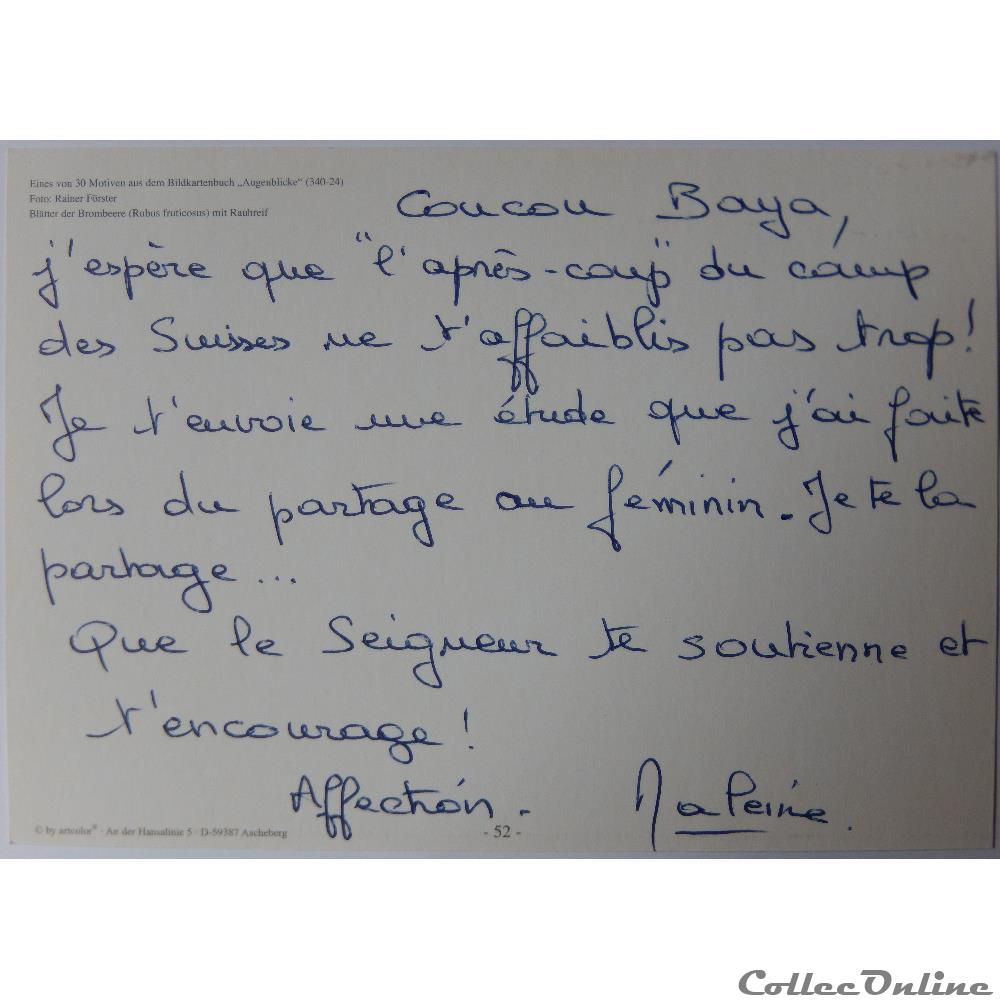 Eines von 30 Motiven aus dem Bildkartenbuch „Augenblicke“ (340-24)
Foto: Rainer Förster
Blätter der Brombeere (Rubus fruticosus) mit Rauhreif
Coucou Baya,
j'espère que "l'après-coup" du camp
des Suisses ne t'affaiblis pas trop!
Je t'envoie une étude que j'ai faite
lors du partage au féminin. Je te la
partage...
Que le Seigneur te soutienne et
t'encourage!
Affection.
© by artcolor® · An der Hansalinie 5 · D-59387 Ascheberg
- 52 -
CollecOnline